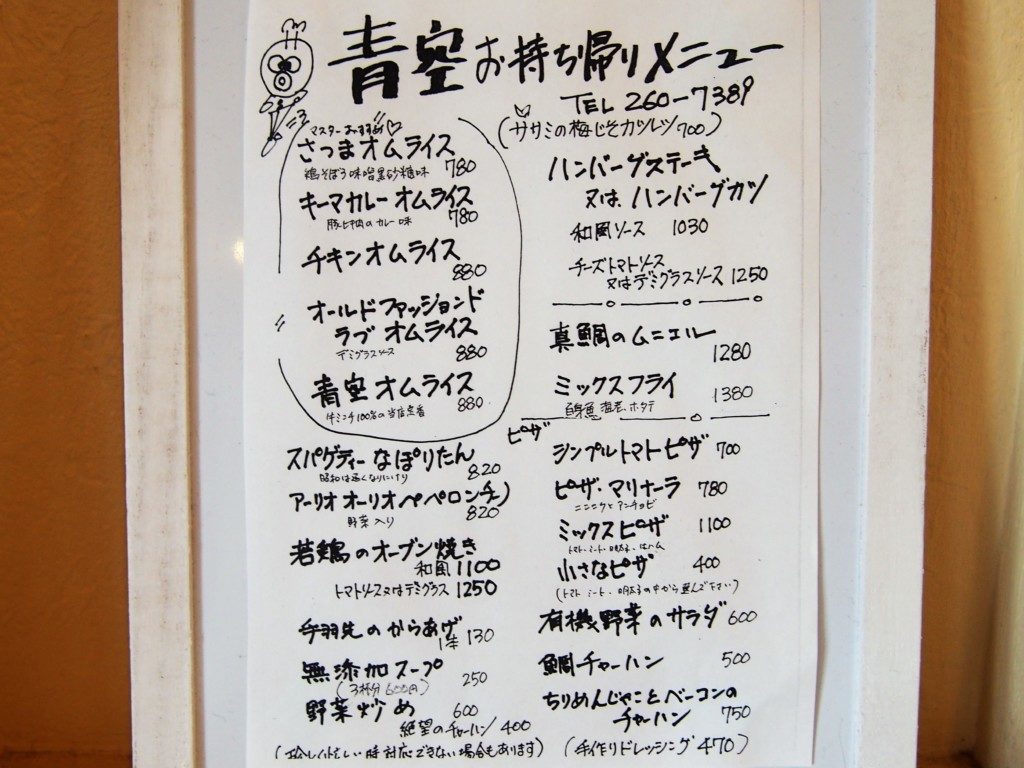 青空お持ち帰りメニュー
TEL 260-7389
マスターおすすめ♡
さつまオムライス
鶏そぼろ味噌黒砂糖味 780
キーマカレーオムライス
豚ヒキ肉のカレー味 780
チキンオムライス
880
オールドファッションド
ラブオムライス
デミグラスソース 880
青空オムライス
牛ミンチ100%の当店定番 880
スパゲティーなぽりたん
昭和は遠くなりにけり 820
アーリオオーリオペペロンチーノ
野菜入り 820
若鶏のオーブン焼き
和風 1100
トマトソース又はデミグラス 1250
手羽先のからあげ
1本 130
無添加スープ 250
(3杯分600円)
野菜炒め 600
絶望のチャーハン 400
(忙しい時対応できない場合もあります)
(ササミの梅じそカツレツ 700)
ハンバーグステーキ
又は ハンバーグカツ
和風ソース 1030
チーズトマトソース
又はデミグラスソース 1250
真鯛のムニエル
1280
ミックスフライ 1380
白身魚 海老 ホタテ
ピザ
シンプルトマトピザ 700
ピザ・マリナーラ 780
ニンニクとアンチョビ
ミックスピザ 1100
トマト・ミート・明太子・
小さなピザ 400
(トマト ミート 明太子の中から選んで下さい)
有機野菜のサラダ 600
鯛チャーハン 500
ちりめんじゃことベーコンの
チャーハン 750
(手作りドレッシング 470)